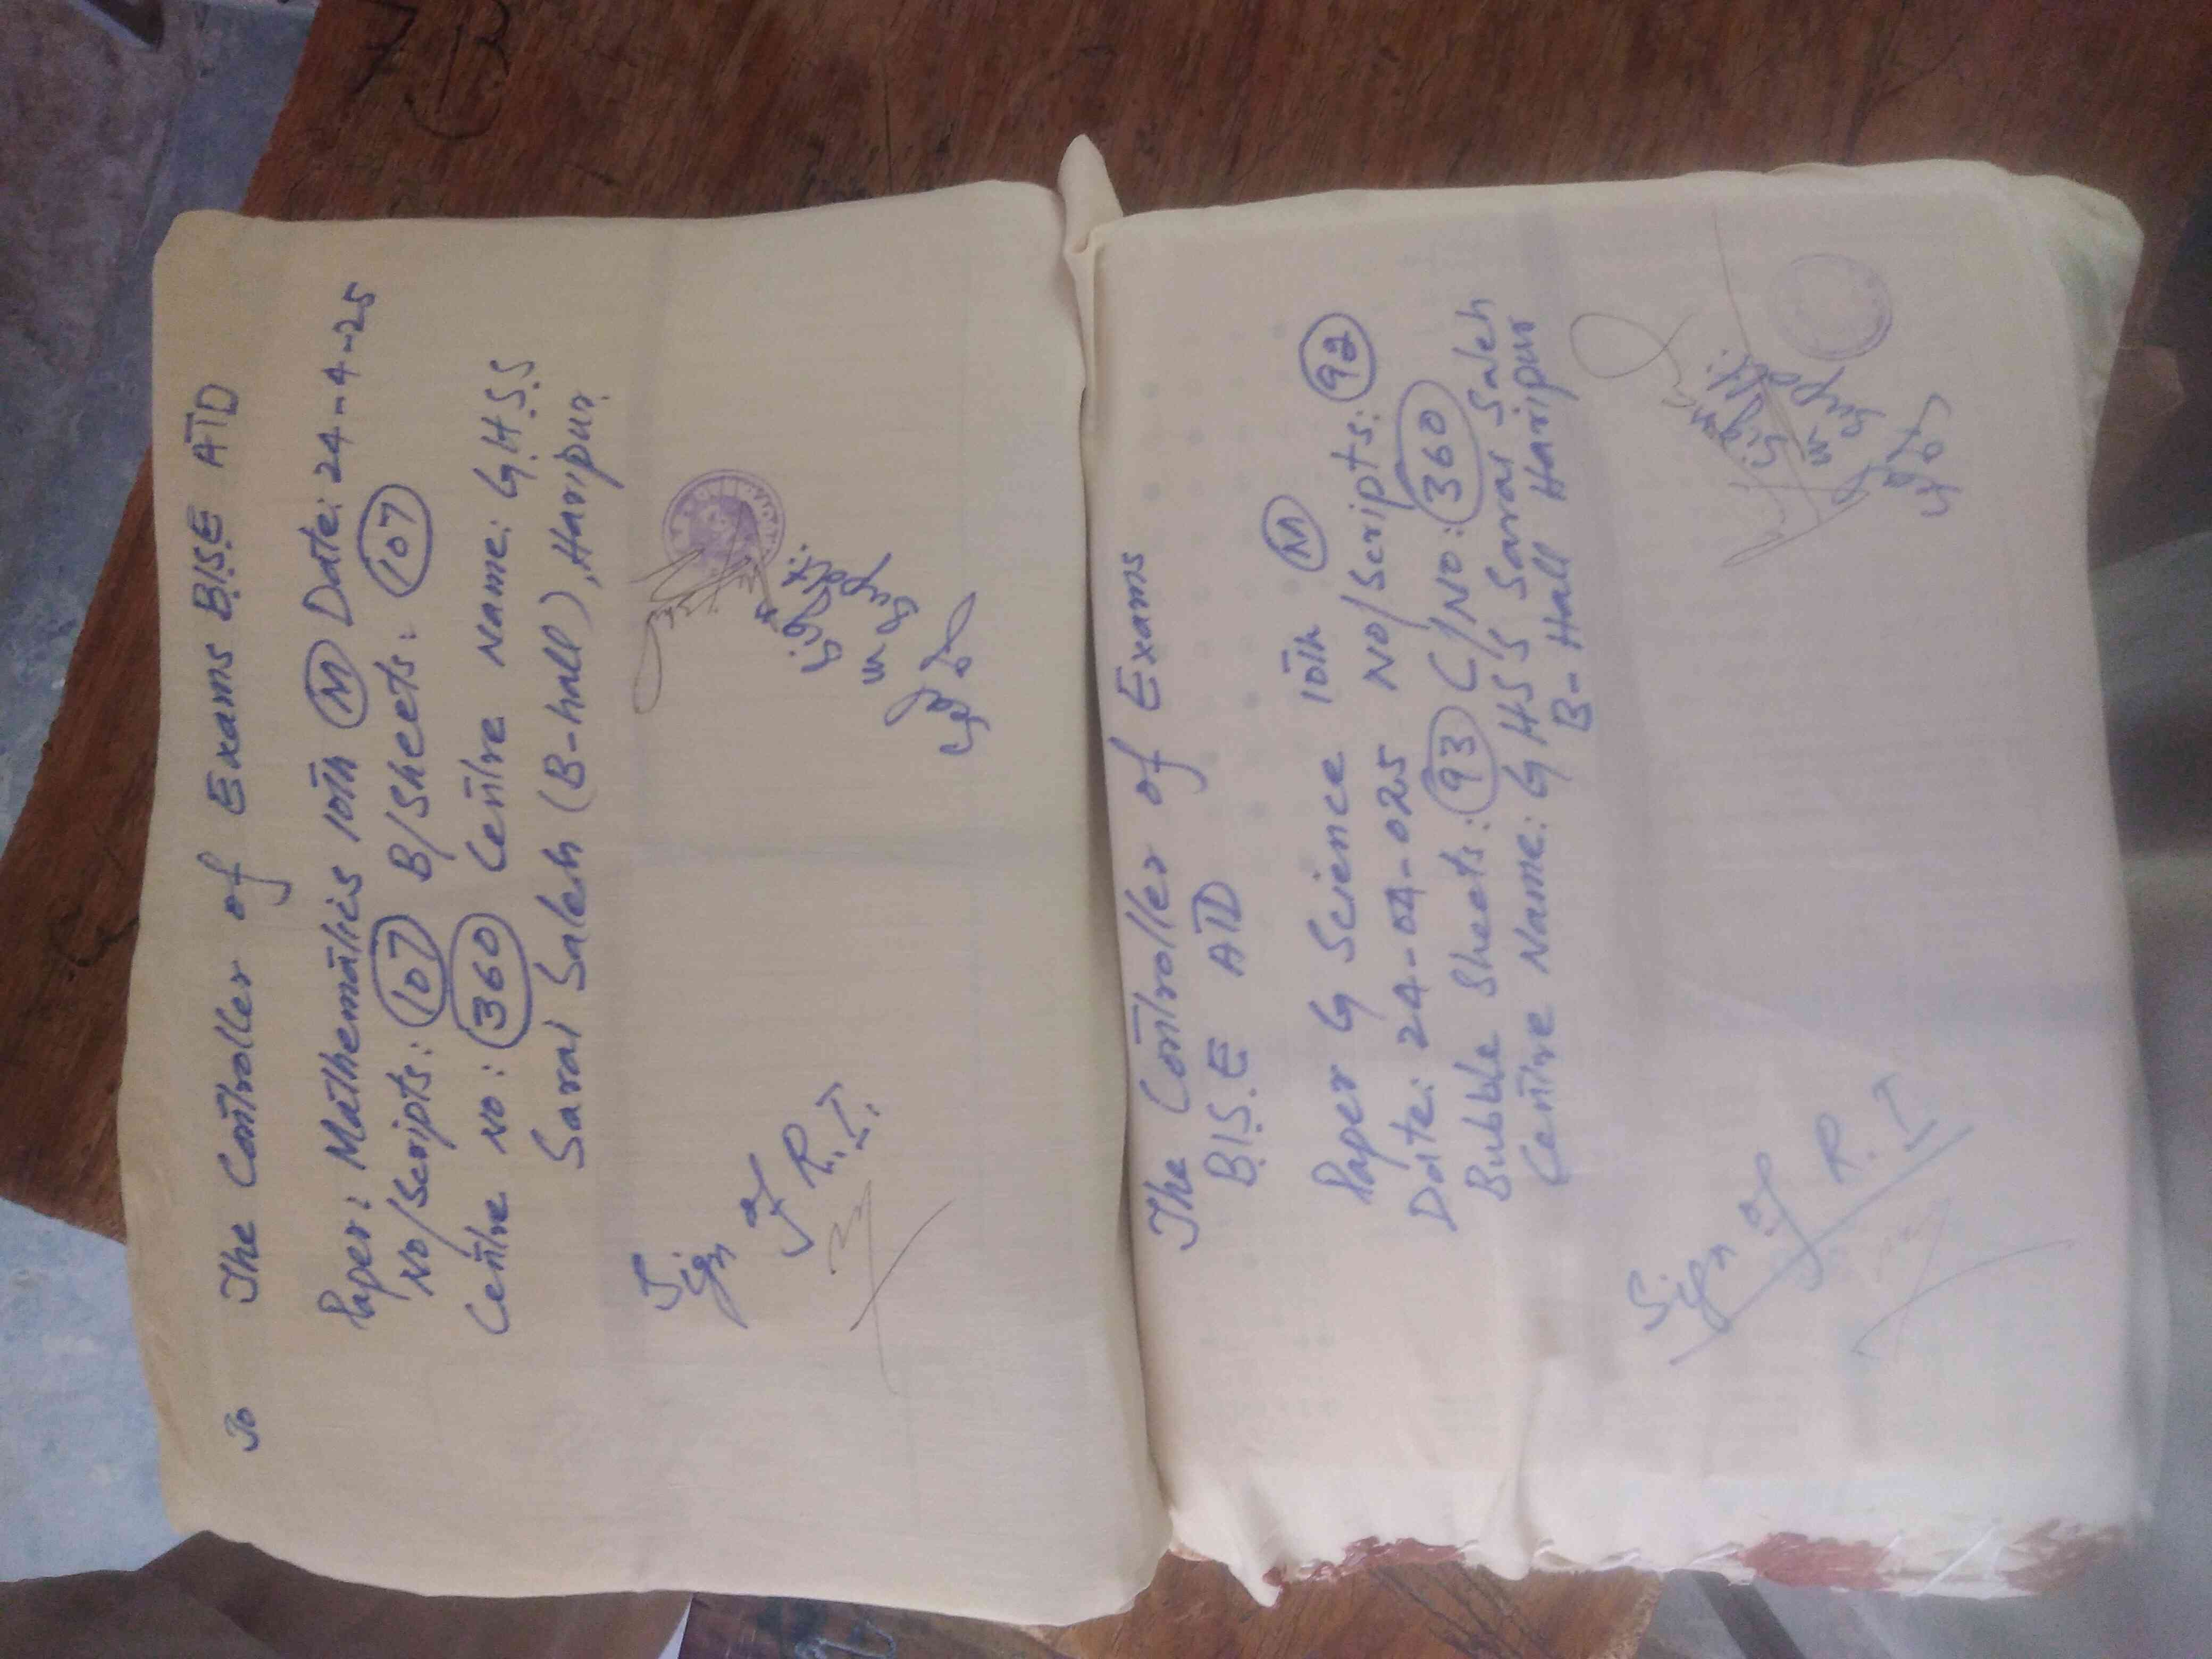 To
The Controller of Exams B.I.S.E ATD
Paper: Mathematics 10th (M) Date: 24-4-25
No/Scripts: 107 B/Sheets: 107
Centre No: 360 Centre Name: G.H.S.S
Sarai Saleh (B-hall), Haripur.
Sign
of
R.I.
The Controller of Exams
B.I.S.E ATD
Paper G Science 10th (M)
Date: 24-04-025 No/Scripts: 92
Bubble Sheets: 93 C/No: 360
Centre Name: G HSS Sarai Saleh
B-Hall Haripur
Sign of R.I